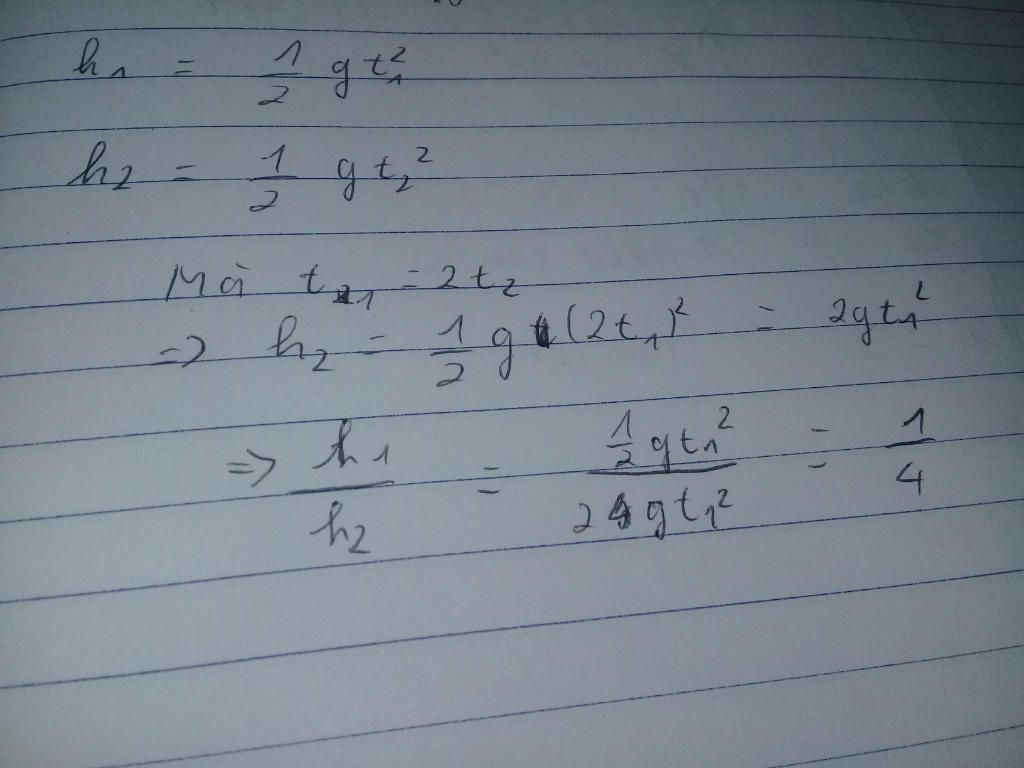 h₁ = 1/2 gt₁²
h₂ = 1/2 gt₂²
Mà t₁ = 2t₂
=> h₂ = 1/2 g(2t₁)² = 2gt₁²
=> h₁/h₂ = (1/2 gt₁²)/(2gt₁²) = 1/4